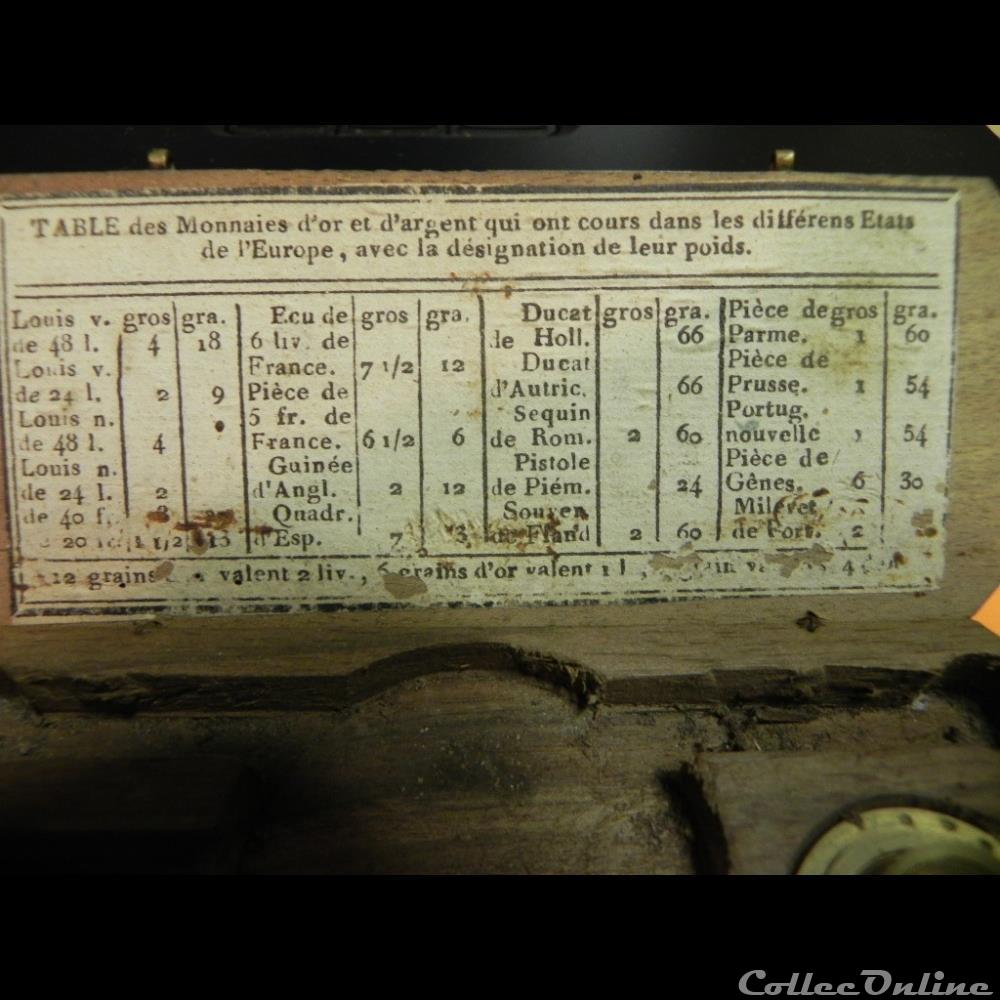 TABLE des Monnaies d'or et d'argent qui ont cours dans les différens Etats
de l'Europe, avec la désignation de leur poids.
Louis v. gros gra.
de 48 l. 4 18
Louis v.
de 24 l. 2 9
Louis n.
de 48 l. 4
Louis n.
de 24 l. 2
de 40 f.
20 1 1/2 13
Ecu de gros gra.
6 liv. de
France. 7 1/2 12
Pièce de
5 fr. de
France. 6 1/2 6
Guinée
d'Angl. 2 12
Quadr.
d'Esp. 7 3
Ducat gros gra.
de Holl. 66
Ducat
d'Autric. 66
Sequin
de Rom. 2 60
Pistole
de Piém. 24
Souver.
Fland 2 60
Pièce de gros gra.
Parme. 1 60
Pièce de
Prusse. 1 54
Portug.
nouvelle 1 54
Pièce de
Gênes. 6 30
Milevet
de Port. 2
12 grains valent 2 liv., 6 grains d'or valent 1 l
CollecOnline